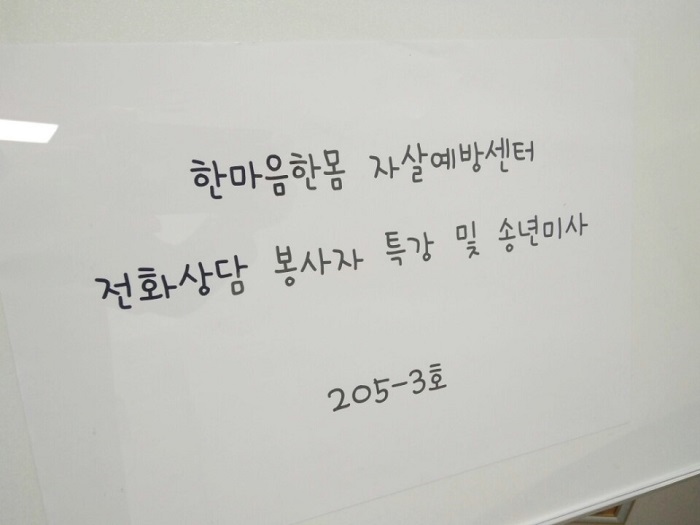 한마음한몸 자살예방센터
전화상담 봉사자 특강 및 송년미사
205-3호